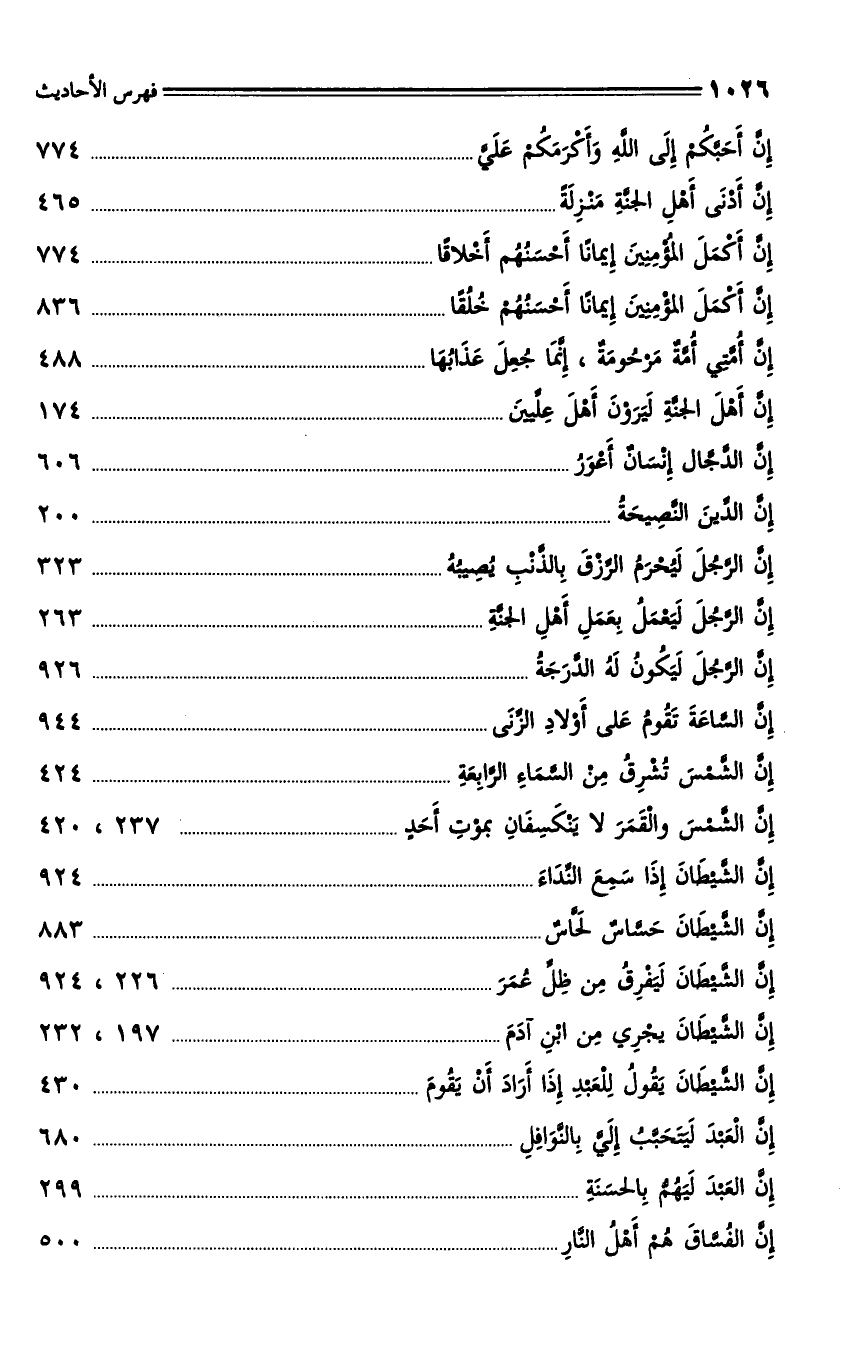 ١٠٢٦ فهرس الأحاديث
إِنَّ أَحَبَّكُمْ إِلَى اللَّهِ وَأَكْرَمَكُمْ عَلَيَّ ........ ٧٧٤
إِنَّ أَدْنَى أَهْلِ الجنَّةِ مَنْزِلَةً ........ ٤٦٥
إِنَّ أَكْمَلَ المُؤْمِنِينَ إِيمانًا أَحْسَنُهُم أَخْلاقًا ........ ٧٧٤
إِنَّ أَكْمَلَ المؤْمِنِينَ إِيمانًا أَحْسَنُهُمْ خُلُقًا ........ ٨٣٦
إِنَّ أُمَّتِي أُمَّةٌ مَرْحُومَةٌ ، إِنَّمَا جُعِلَ عَذَابُهَا ........ ٤٨٨
إِنَّ أَهْلَ الجنَّةِ لَيَرَوْنَ أَهْلَ عِلِّيينَ ........ ١٧٤
إِنَّ الدَّجَّال إِنْسَانٌ أَعْوَرُ ........ ٦٠٦
إِنَّ الدِّينَ النَّصِيحَةُ ........ ٢٠٠
إِنَّ الرَّجُلَ لَيُحْرَمُ الرِّزْقَ بِالذَّنْبِ يُصِيبُهُ ........ ٣٢٣
إِنَّ الرَّجُلَ لَيَعْمَلُ بِعَمَلِ أَهْلِ الجنَّةِ ........ ٢٦٣
إِنَّ الرَّجُلَ لَيَكُونُ لَهُ الدَّرَجَةُ ........ ٩٢٦
إِنَّ السَّاعَةَ تَقُومُ عَلى أَوْلادِ الزِّنَى ........ ٩٤٤
إِنَّ الشَّمْسَ تُشْرِقُ مِنْ السَّمَاءِ الرَّابِعَةِ ........ ٤٢٤
إِنَّ الشَّمْسَ والْقَمَرَ لا يَنْكَسِفَانِ بموْتِ أَحَدٍ ........ ٢٣٧ ، ٤٢٠
إِنَّ الشَّيْطَانَ إِذَا سَمِعَ النِّدَاءَ ........ ٩٢٤
إِنَّ الشَّيْطَانَ حَسَّاسٌ لَحَّاسٌ ........ ٨٨٣
إِنَّ الشَّيْطَانَ لَيَفْرِقُ مِن ظِلِّ عُمَرَ ........ ٢٢٦ ، ٩٢٤
إِنَّ الشَّيْطَانَ يجْرِي مِن ابْنِ آدَمَ ........ ١٩٧ ، ٢٣٢
إِنَّ الشَّيْطَانَ يَقُولُ لِلْعَبْدِ إِذَا أَرَادَ أَنْ يَقُومَ ........ ٤٣٠
إِنَّ الْعَبْدَ لَيَتَحَبَّبُ إِلَيَّ بِالنَّوَافِلِ ........ ٦٨٠
إِنَّ العَبْدَ لَيَهُمُّ بِالحسَنَةِ ........ ٢٩٩
إِنَّ الفُسَّاقَ هُمْ أَهْلُ النَّارِ ........ ٥٠٠